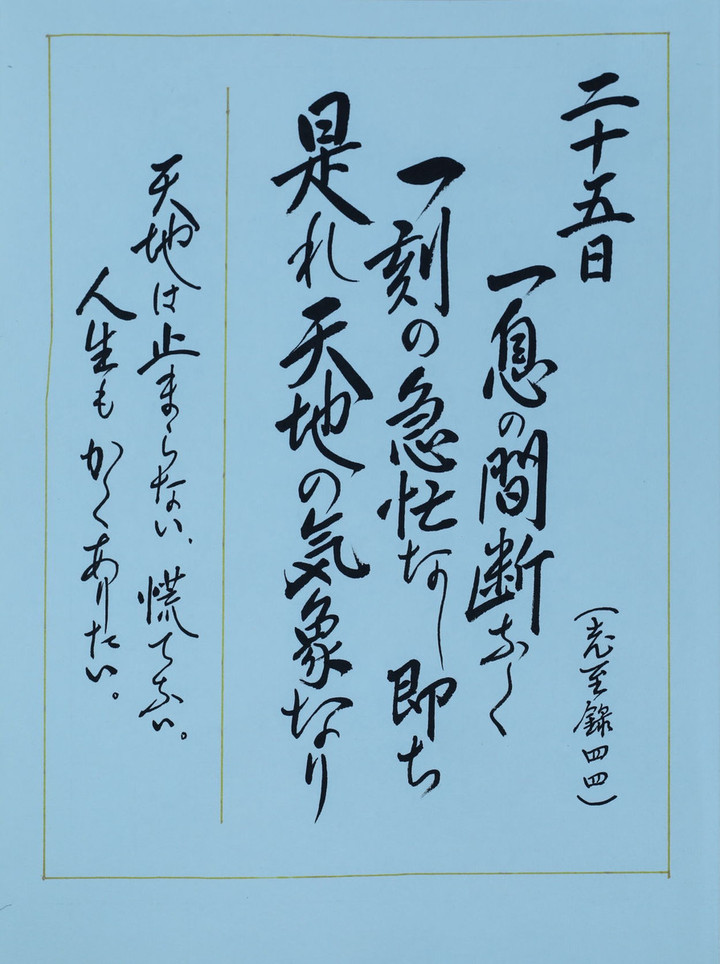 二十五日
一息の間断なく
（耋録四四）
一刻の急忙なし即ち
是れ天地の気象なり
天地は止まらない、慌てない。
人生もかくありたい。